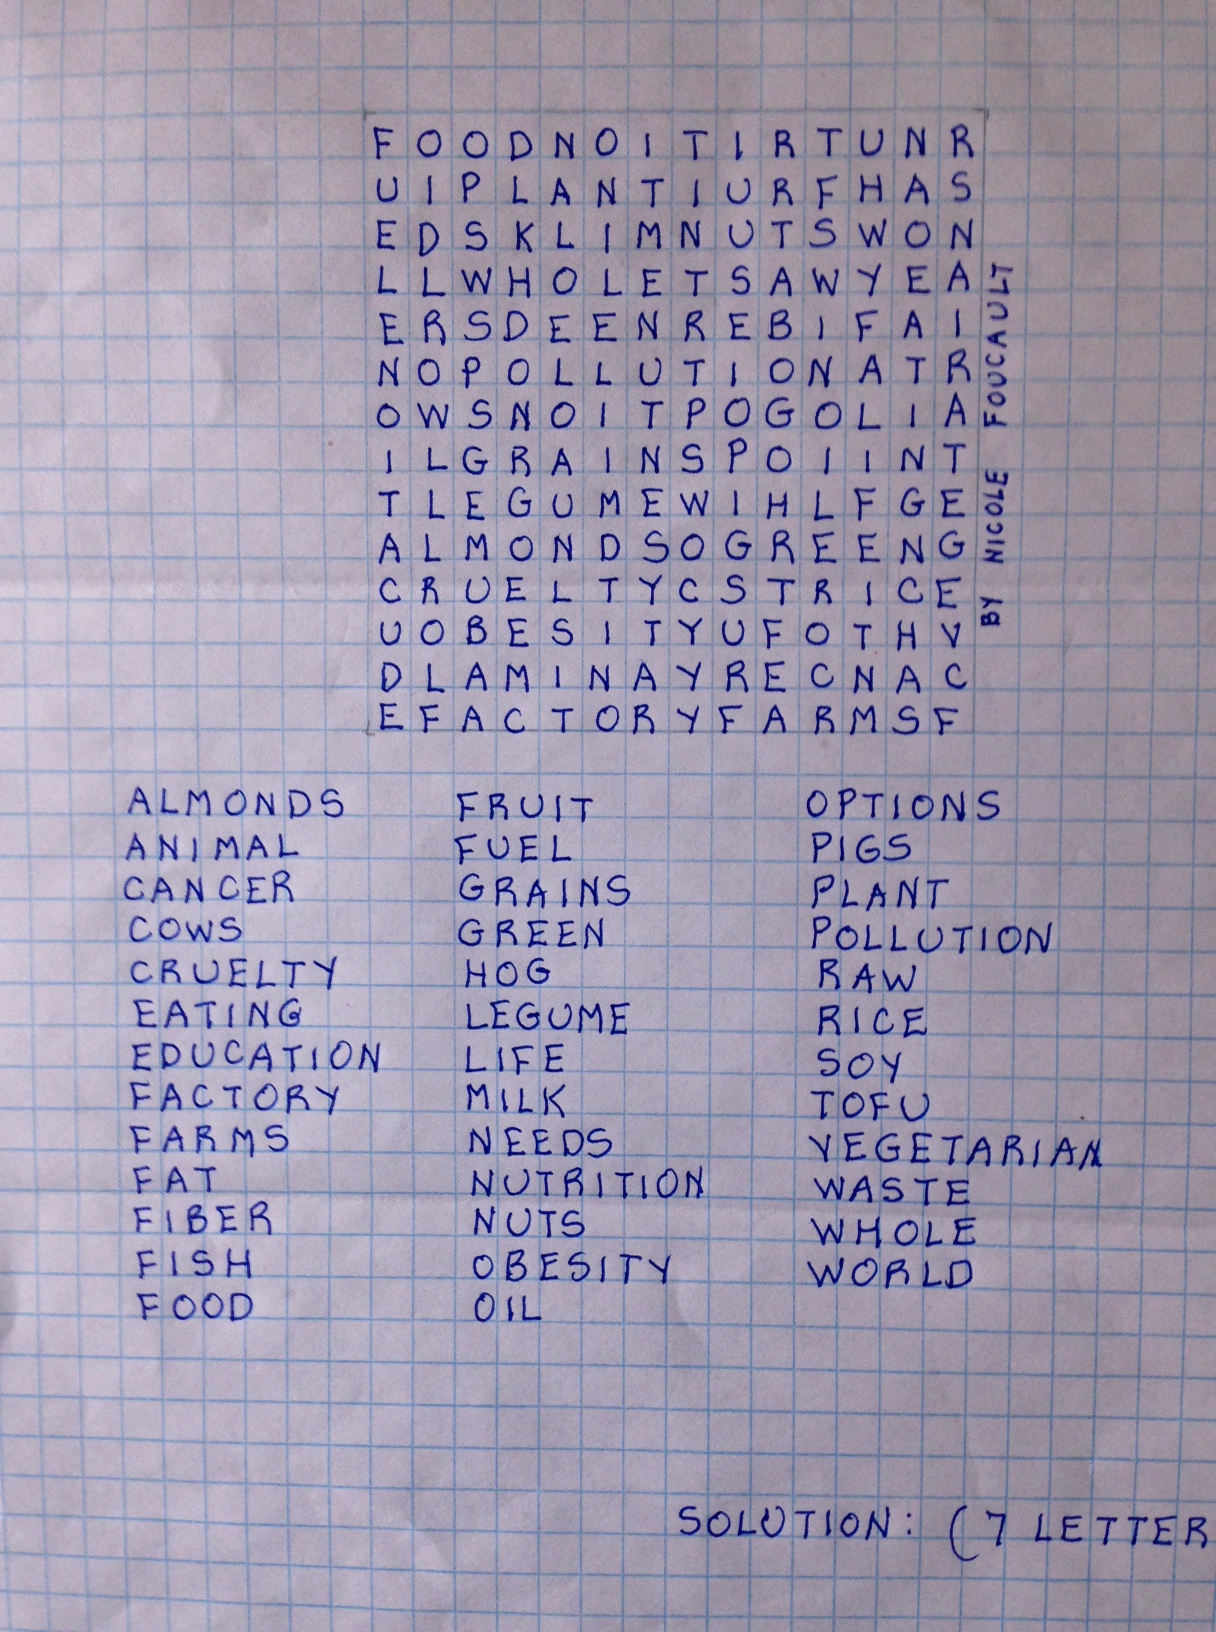 F O O D N O I T I R T U N R
U I P L A N T I U R F H A S
E D S K L I M N U T S W O N
L L W H O L E T S A W Y E A
E R S D E E N R E B I F A I
N O P O L L U T I O N A T R
O W S N O I T P O G O L I A
I L G R A I N S P O I I N T
T L E G U M E W I H L F G E
A L M O N D S O G R E E N G
C R U E L T Y C S T R I C E
U O B E S I T Y U F O T H V
D L A M I N A Y R E C N A C
E F A C T O R Y F A R M S F
BY NICOLE FOUCAULT
ALMONDS
ANIMAL
CANCER
COWS
CRUELTY
EATING
EDUCATION
FACTORY
FARMS
FAT
FIBER
FISH
FOOD
FRUIT
FUEL
GRAINS
GREEN
HOG
LEGUME
LIFE
MILK
NEEDS
NUTRITION
NUTS
OBESITY
OIL
OPTIONS
PIGS
PLANT
POLLUTION
RAW
RICE
SOY
TOFU
VEGETARIAN
WASTE
WHOLE
WORLD
SOLUTION: (7 LETTER